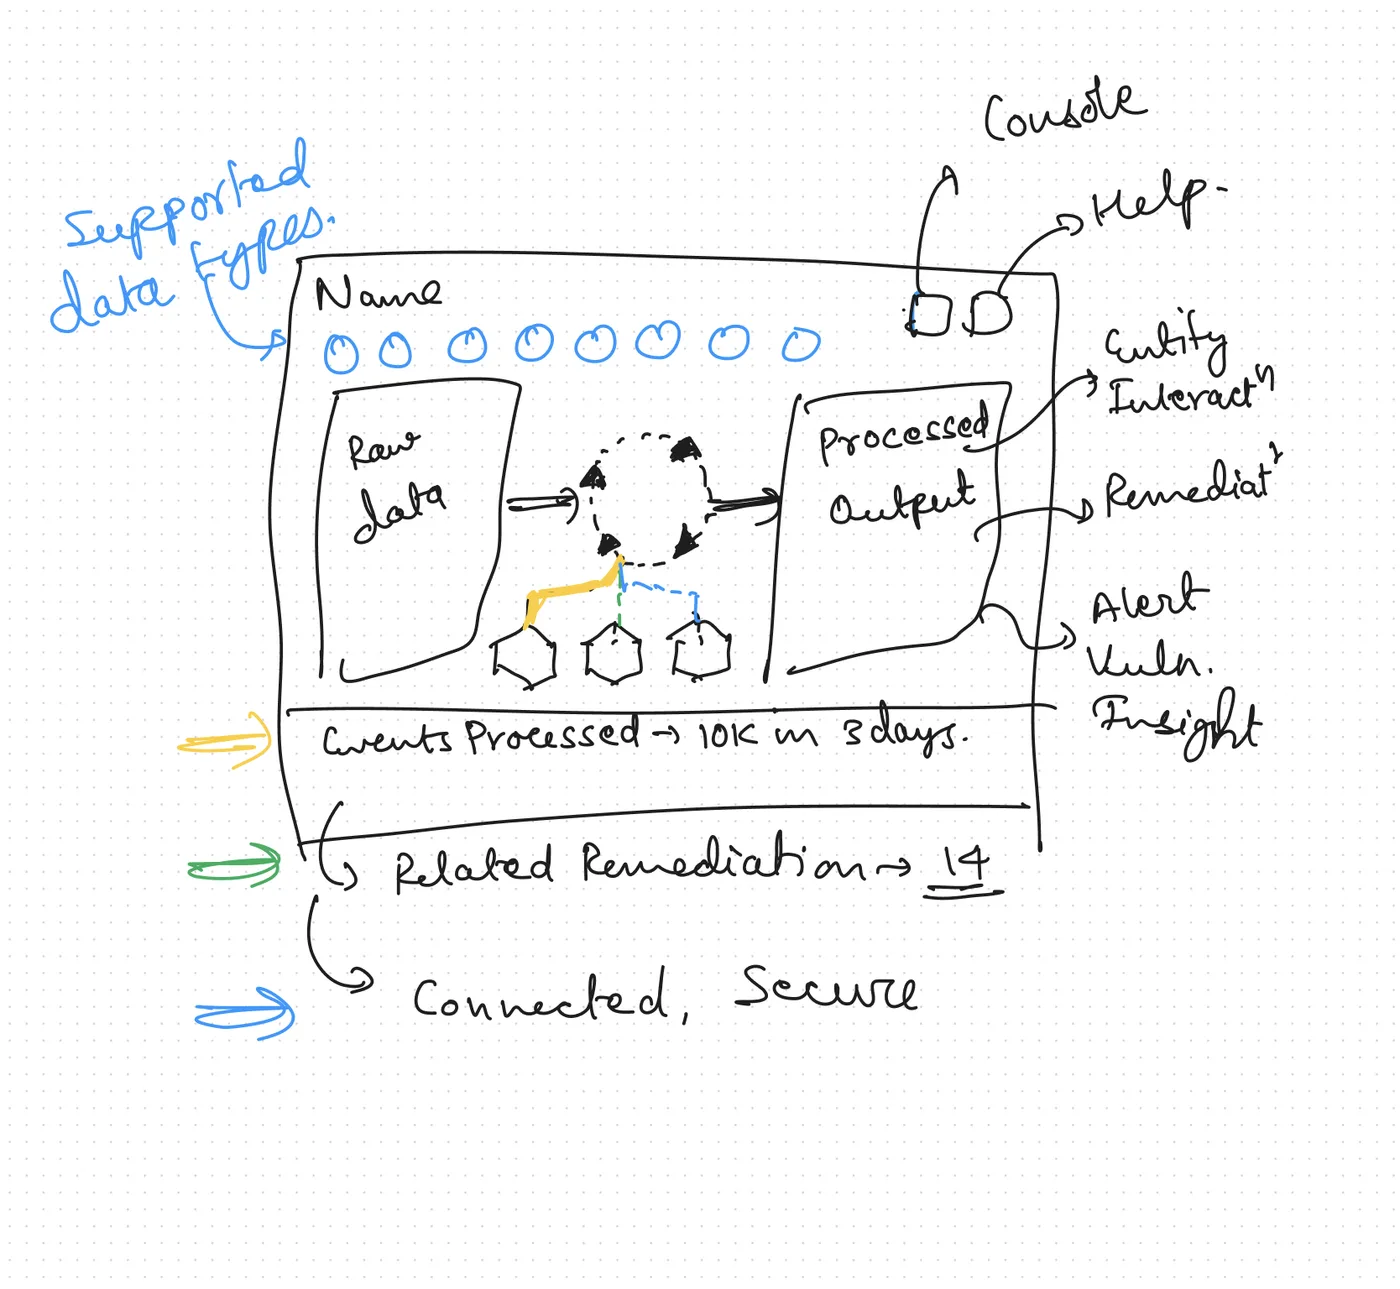 Console
Help-
Supported
data types.
Name
Entity
Interactⁿ
Raw
data
Processed
Output
Remediat
Alert
Vuln.
Insight
Events Processed → 10K in 3 days.
Related Remediation → 14
Connected, Secure